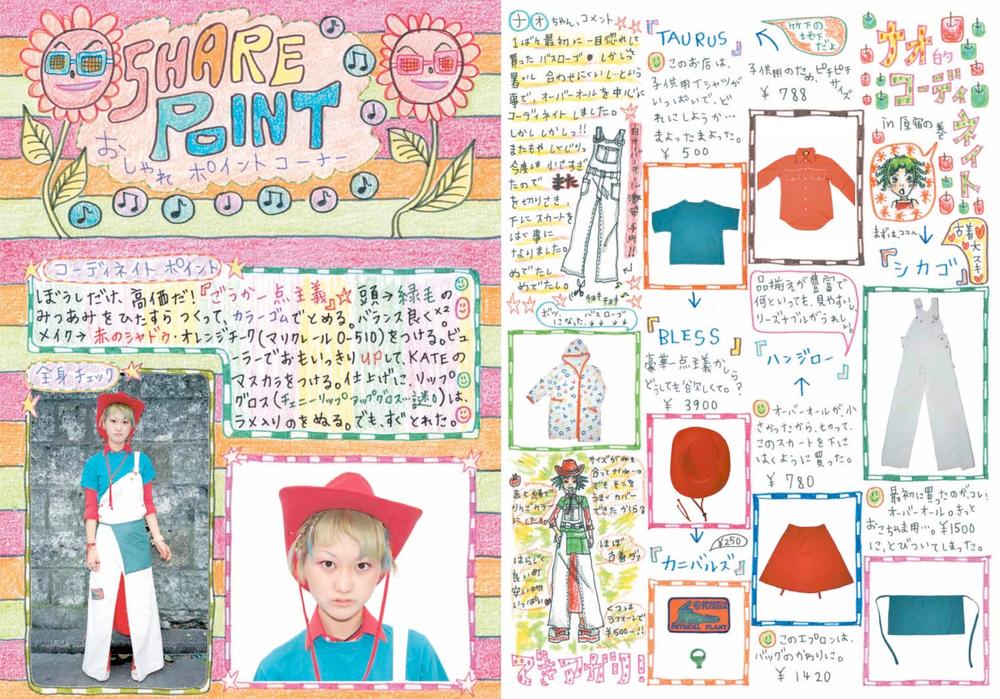 SHARE
POINT
おしゃれ ポイント コーナー
コーディネイト ポイント
ぼうしだけ、高価だ!『ごうかー点主義』☆ 頭→緑毛の
みつあみをひたすらつくって、カラーゴムでとめる。バランス良く××2
メイク→赤のシャドウ・オレンジチーク(マリクレール O-510)をつける。ビュ
ーラーでおもいっきりUPして、KATEの
マスカラをつける。仕上げに、リップ
グロス(チェニーリップラップグロス…謎0)は、
ラメ入りのをぬる。でも、すぐとれた。
全身チェック
ナオちゃん、コメント
1ばん最初に一目惚れして
買ったバスローブ しかしっ
暑いし 合わせにくいしーという
事で、オーバーオールを中心に
コーディネイトしました。
しかししかしっ!!
今度は小さすぎ
たので また
を切りさき、
下にスカートを
はく事に
なりました。
めでたし
めでたし。
白オーバーオール 激安 千円!!
チョキチョキ
ボツになった、バスローブ
『TAURUS』
このお店は、
子供用Tシャツが
いっぱいで、ど
れにしようか…
まよったまよった。
¥500
竹下の
地下
だよ
子供用のため、ピチピチ
サイズ
¥788
ナオ的
コーディ
ネイト
in 原宿の巻
まずは、ココへ
古着
大スキ
『シカゴ』
品揃えが豊富で
何といっても、見やすい。
リーズナブルがうれし。
『ハンジロー』
オーバーオールが、小
さかったから、切って、
このスカートを下に
はくように買った。
¥780
最初に買ったのがコレ!
オーバーオール。きっと
おこちゃま用…。¥1500
に、とびついてしまった。
『BLESS』
豪華一点主義だから
どうしても欲しくて。?
¥3900
『カニバルズ』
¥250
PHYSICAL PLANT
このエプロンは、
バッグのかわりに。
¥1420
サイズが
合ってナイ…。
でもそこを
うまくカバー
できたかしら
赤と緑で
りんごカラー
にしたよ
ほぼ
古着だヮ
¥500ー!!
できアガリ!